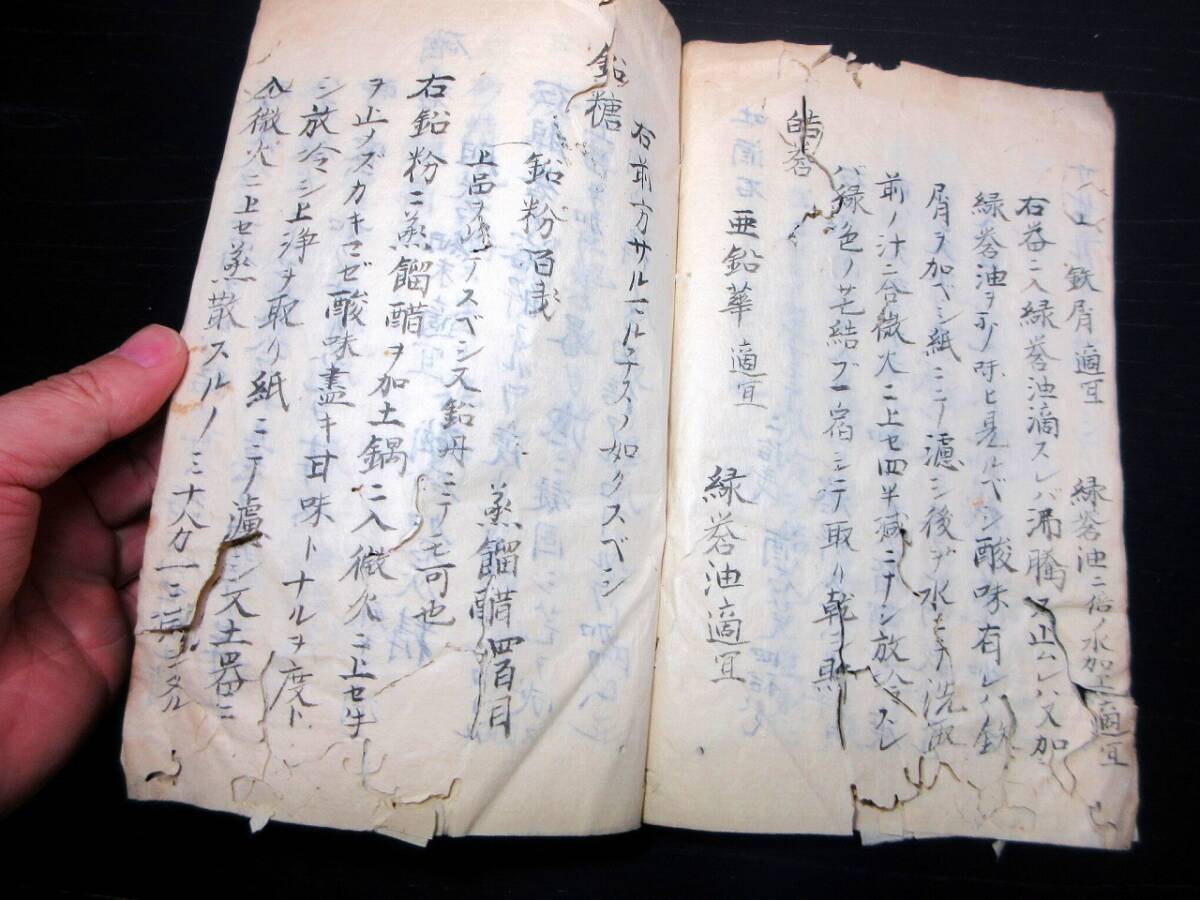 鉄屑 適宜 緑礬油二倍ノ水加工適宜
右呑ニ入緑礬油滴スレバ沸騰ス止ムレバ又加
緑礬油ヲ少ノ味ヒ見ルベシ酸味有レバ鉄
屑ヲ加ベシ紙ニテ濾シ後チ水モテ洗取
前ノ汁ニ合微火ニ上セ四半減ニナシ放冷スレ
バ緑色ノ芒結ブ一宿ニシテ取リ乾ヨ
皓礬
亜鉛華 適宜 緑礬油適宜
右前方サルマルチスノ如クスベシ
鉛糖
鉛粉百戔 蒸餾醋四百目
上品ヲテスベシ又鉛丹ニテモ可也
右鉛粉ニ蒸餾醋ヲ加土鍋ニ入微火ニ上セ牛
ヲ止ノズカキマゼ酸味盡キ甘味トナルヲ度ト
シ放冷シ上浄ヲ取リ紙ニテ濾シ又土器ニ
入微火ニ上セ蒸散スルノ三十八分一ニ至ニタル